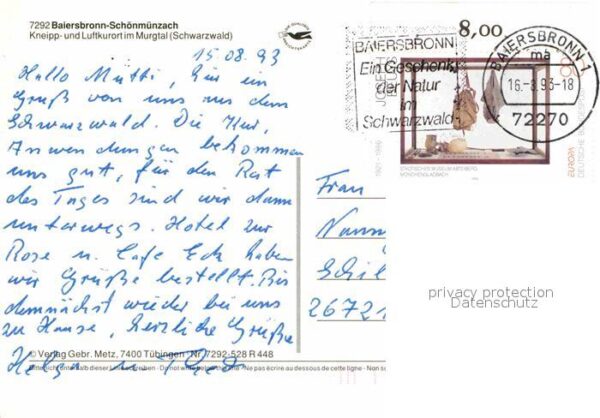 7292 Baiersbronn-Schönmünzach
Kneipp- und Luftkurort im Murgtal (Schwarzwald)
15.08.93
Hallo Mutti, hier ein
Gruß von uns aus dem
Schwarzwald. Die Kur,
Anwendungen bekommen
uns gut, für den Rest
des Tages sind wir dann
unterwegs. Hotel zur
Rose u. Cafe Eck haben
wir Grüße bestellt. Bis
demnächst wieder bei uns
zu Hause, herzliche Grüße
Helga u.
© Verlag Gebr. Metz, 7400 Tübingen Nr. 7292-528 R 448
Bitte nicht unterhalb dieser Linie schreiben · Do not write below this line · Ne pas écrire au dessous de cette ligne · Non
8,00
BAIERSBRONN
Ein Geschenk
der Natur
im
Schwarzwald
BAIERSBRONN 1
ma
16.-3.93-18
72270
1921 - 1986
STÄDTISCHES MUSEUM ABTEIBERG
MÖNCHENGLADBACH
EUROPA
DEUTSCHE BUNDESPOST
Frau
Nann
Schil
26721
privacy protection
Datenschutz